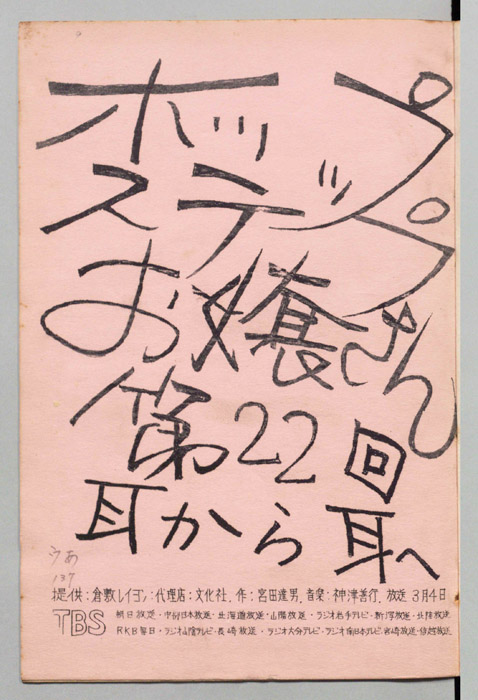 ホップ
ステップ
お嬢さん
第22回
耳から耳へ
うあ
137
提供:倉敷レイヨン:代理店:文化社、作:宮田達男、音楽:神津善行、放送3月4日
TBS
朝日放送・中部日本放送・北海道放送・山陽放送・ラジオ岩手テレビ・新潟放送・北陸放送
RKB毎日・ラジオ山陰テレビ・長崎放送・ラジオ大分テレビ・ラジオ南日本テレビ・宮崎放送・信越放送